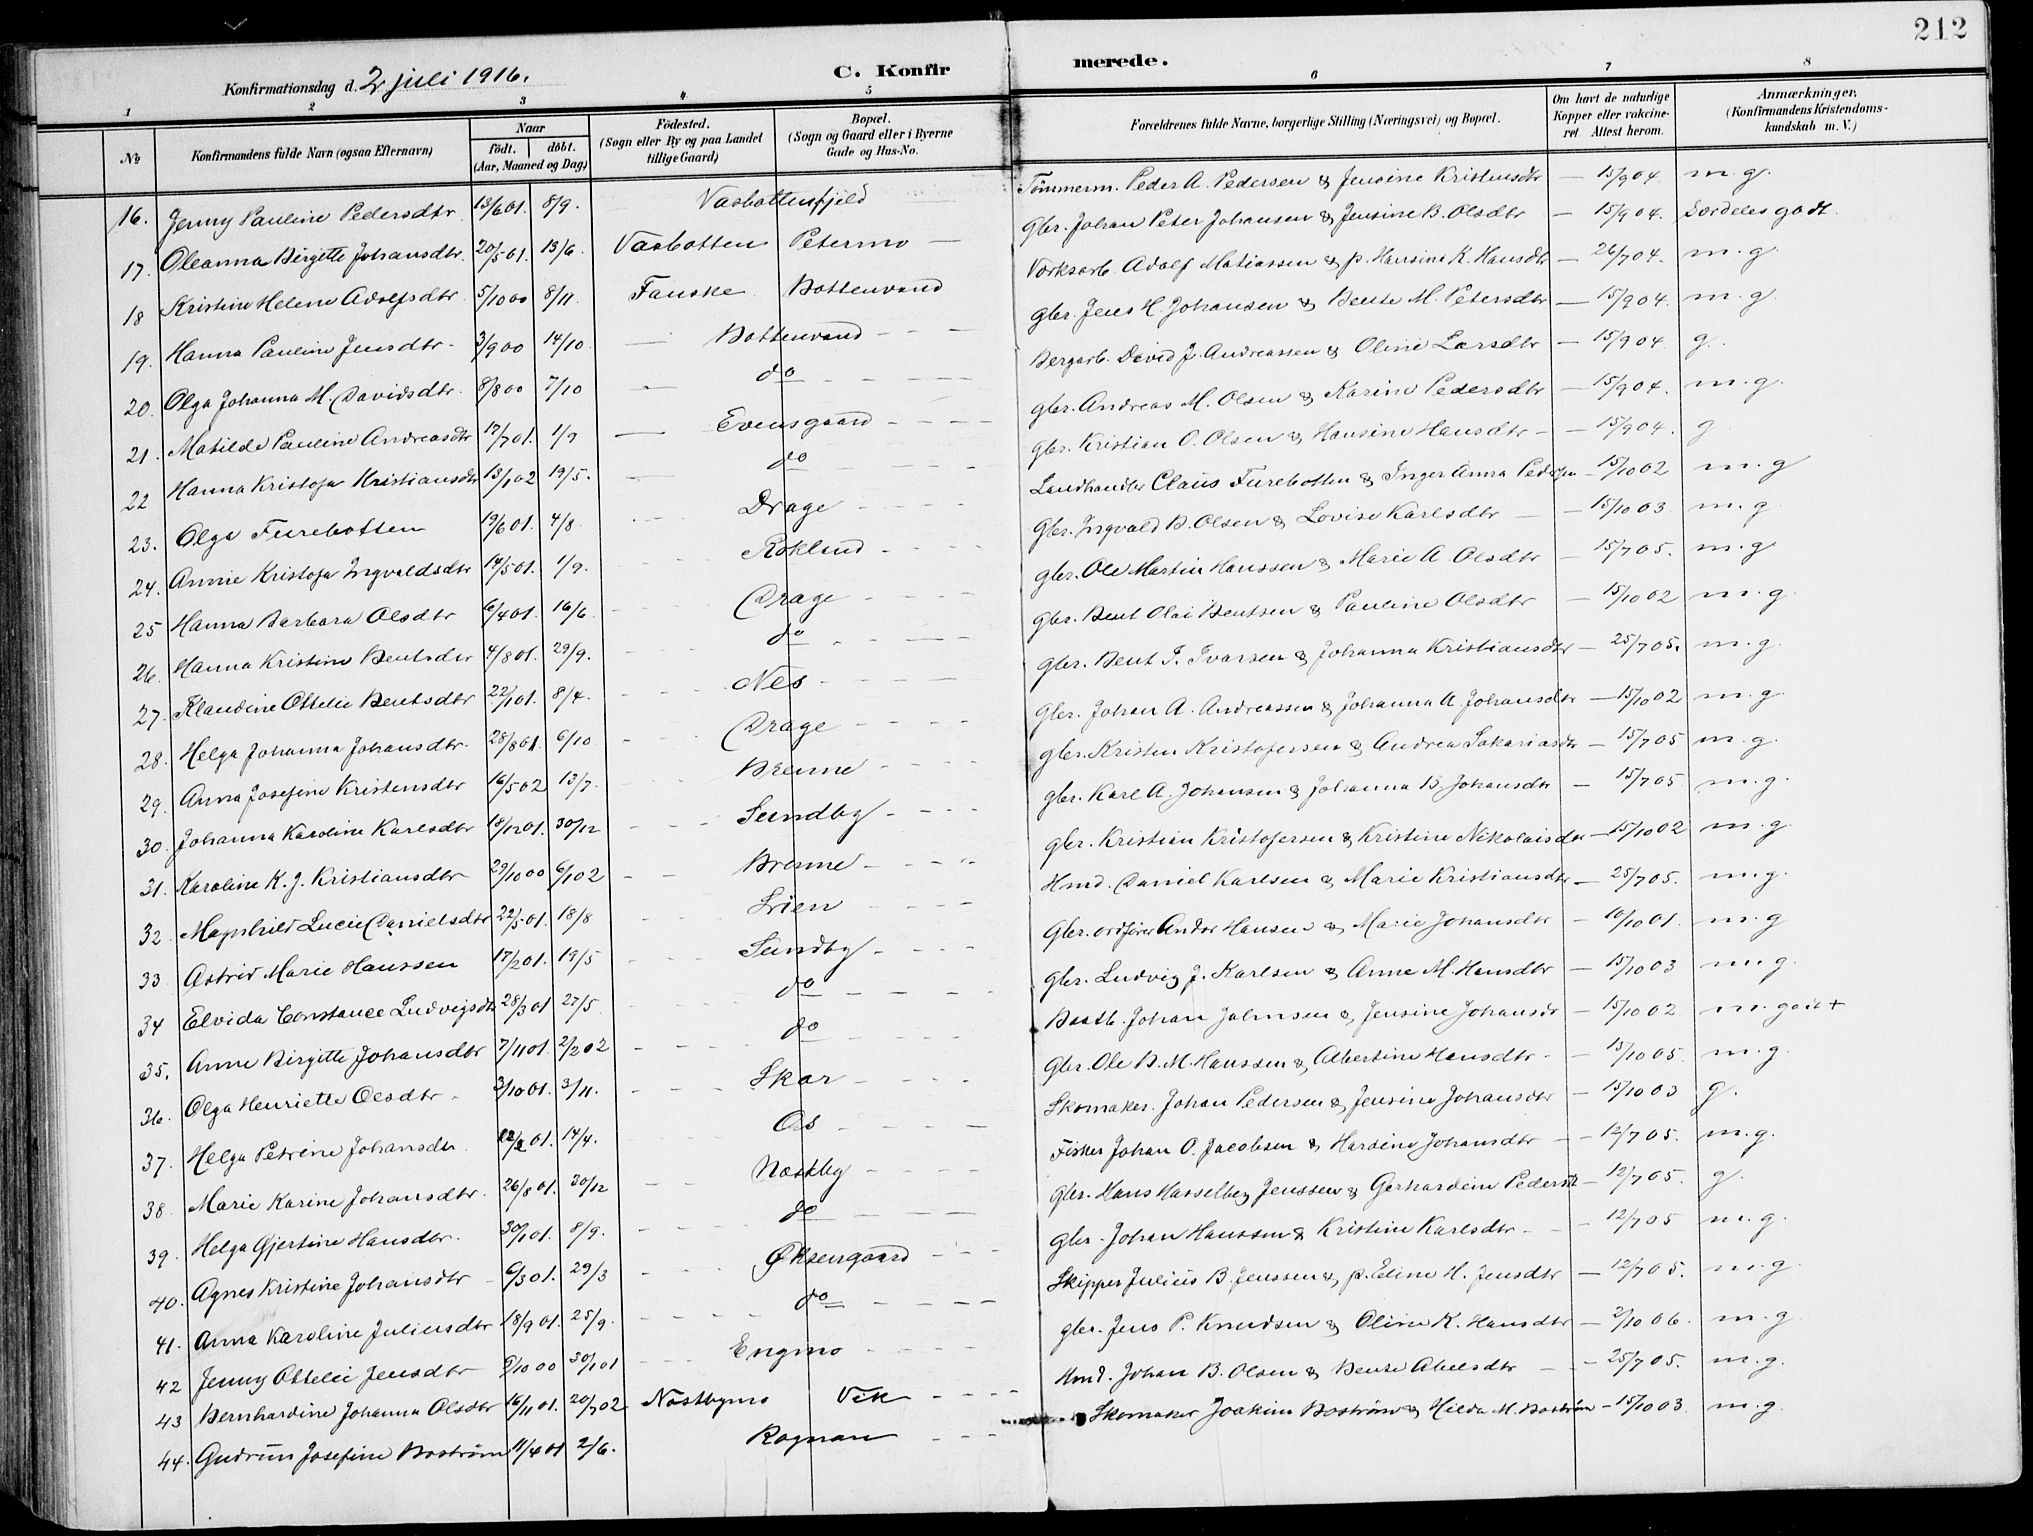 212
Konfirmationsdag d. 2 juli 1916. C. Konfir merede.
1 2 3 4 5 6 7 8
No Konfirmandens fulde Navn (ogsaa Efternavn) Naar født. døbt. (Aar, Maaned og Dag) Fødested. (Sogn eller By og paa Landet tillige Gaard) Bopæl. (Sogn og Gaard eller i Byerne Gade og Hus-No. Forældrenes fulde Navne, borgerlige Stilling (Næringsvei) og Bopæl. Om havt de naturlige Kopper eller vakcineret Attest herom. Anmærkninger. (Konfirmandens Kristendomskundskab m. V.)
16. Jenny Pauline Pedersdtr 13/6 01. 8/9. Vasbottenfjeld Tømmerm. Peder A. Pedersen & Jensine Kristensdtr — 15/9 04. m. g.
17. Oleanna Birgitte Johansdtr. 20/5 01. 13/6. Vasbotten Petermo — Gbr. Johan Peter Johansen & Jensine B. Olsdtr — 15/9 04. Særdeles godt.
18 Kristine Helene Adolfsdtr 5/10 00 8/11. Fauske Bottenvand Værksarb. Adolf Matiassen & p. Hansine K. Hansdtr — 26/7 04. m. g.
19. Hanna Pauline Jensdtr. 3/9 00 14/10 — Bottenvand — gbr. Jens H. Johansen & Bente M. Petersdtr — 15/9 04. m. g.
20. Olga Johanna M. Davidsdtr. 8/8 00 7/10 — do — Bergarb. David J. Andreassen & Oline Larsdtr — 15/9 04 g.
21. Matilde Pauline Andreasdtr 17/7 01. 1/9 — Evensgaard — gbr. Andreas M. Olsen & Karine Pedersdtr — 15/9 04. m. g.
22 Hanna Kristofa Kristiansdtr 13/1 02 19/5. — do — gbr. Kristian O. Olsen & Hansine Hansdtr — 15/9 04. g
23. Olga Furebotten 19/6 01. 4/8. Drage — Landhandler Claus Furebotten & Inger Anna Pedersen — 15/10 02 m. g
24. Annie Kristofa Ingvaldsdtr 14/5 01. 1/9. Røklund — Gbr. Ingvald B. Olsen & Lovise Karlsdtr — 15/10 03. m. g.
25 Hanna Barbara Olsdtr 6/4 01. 16/6. Drage — gbr. Ole Martin Hanssen & Marie A Olsdtr — 15/7 05. m. g
26. Hanna Kristine Bentsdtr 4/8 01. 29/9. do — gbr. Bent Olai Bentsen & Pauline Olsdtr — 15/10 02 m. g.
27. Klaudine Ottelie Bentsdtr 22/1 01. 8/4. Nes — gbr. Bent I. Ivarsen & Johanna Kristiansdtr — 25/7 05. m. g.
28. Helga Johanna Johansdtr. 28/8 01. 6/10 Drage — Gbr. Johan A. Andreassen & Johanna A Johansdtr — 15/10 02 m. g.
29. Anna Josefine Kristensdtr 16/5 02 13/7. Brenne — gbr. Kristen Kristofersen & Andrea Sakariasdtr — 15/7 05 m. g.
30. Johanna Karoline Karlsdtr 18/12 01. 30/12 Sundby — gbr. Karl A. Johansen & Johanna B. Johansdtr — 15/7 05 m. g.
31. Karoline K. J. Kristiansdtr 29/10 00 6/1 02 Brenne — gbr. Kristian Kristofersen & Kristine Nikolaisdtr — 15/10 02 m. g.
32 Magnhild Lucie Danielsdtr 22/5 01. 18/8 Lien — Hmd. Daniel Karlsen & Marie Kristiansdtr — 25/7 05. m. g.
33 Astrid Marie Hanssen 17/2 01. 19/5 Sundby — Gbr. ordfører Andor Hansen & Marie Johansdtr — 10/10 01. m. g
34 Elvida Constance Ludvigsdtr 28/3 01 27/5 do — gbr. Ludvig J. Karlsen & Anne M. Hansdtr — 15/10 03 m. g.
35. Anne Birgitte Johansdtr 7/11 01. 2/2 02 do — Baatb. Johan Johnsen & Jensine Johansdtr — 15/10 02. m. godt +
36. Olga Henriette Olsdtr. 3/10 01. 3/11. Skar — gbr. Ole B. M. Hanssen & Albertine Hansdtr. — 15/10 05. m. g.
37. Helga Petrine Johansdtr 01. 14/4. Os — Skomaker. Johan Pedersen & Jensine Johansdtr — 15/10 03 g.
38. Marie Karine Johansdtr. 26/8 01. 30/12 Nestby — Fisker Johan O. Jacobsen & Hardine Johansdtr — 12/7 05. m. g.
39. Helga Gjertine Hansdtr. 30/1 01. 8/9. do — gbr. Hans Hasselberg Jenssen & Gerhardine Pedersdtr — 12/7 05. g.
40. Agnes Kristine Johansdtr 6/3 01. 29/3 Øksengaard — gbr. Johan Hanssen & Kristine Karlsdtr — 12/7 05 m. g.
41. Anna Karoline Juliusdtr 18/9 01. 25/9. do — Skipper Julius B. Jenssen & p. Edine H. Jensdtr — 12/7 05. m. g.
42 Jenny Ottelie Jensdtr 6/10 00 30/1 01 Engmo — gbr. Jens P. Knudsen & Oline K. Hansdtr — 2/10 06. m. g
43 Bernhardine Johanna Olsdtr 16/11 01. 20/7 02 Nestbymo Vik — Hmd. Johan B. Olsen & Bente Abelsdtr — 25/7 05. m. g.
44. Gudrun Josefine Bostrøm 11/4 01 2/6. Rognan — Skomaker Joakim Bostrøm & Hilda M. Bostrøm — 15/10 03. m. g.